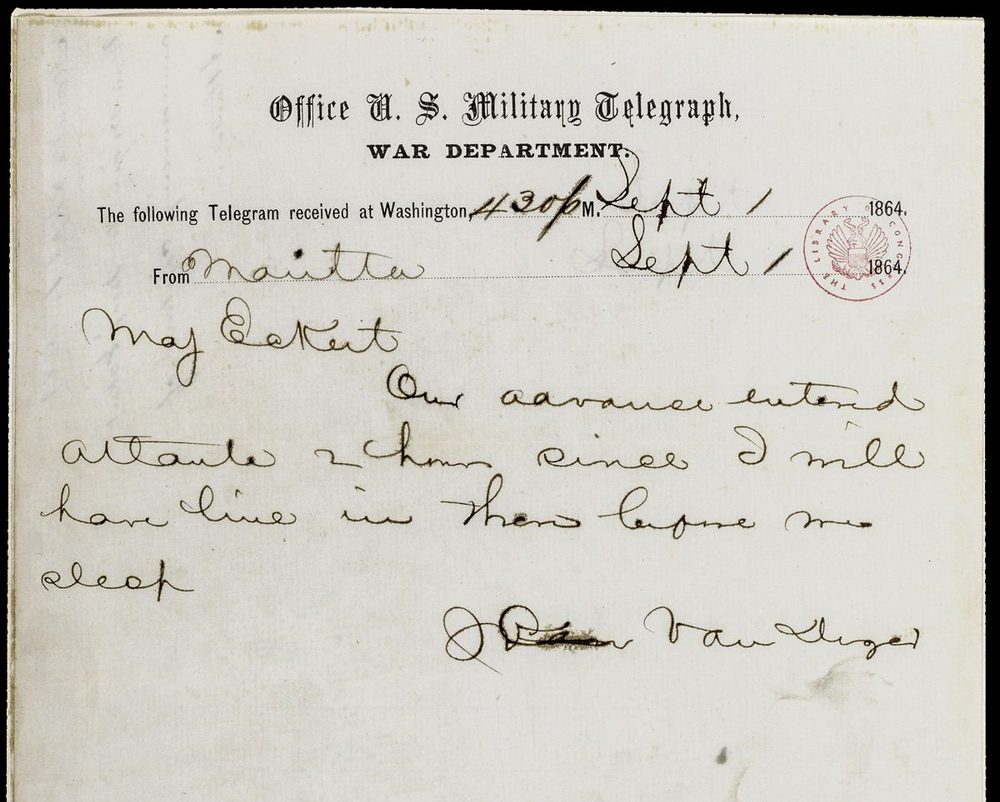 Office U. S. Military Telegraph,
WAR DEPARTMENT.
The following Telegram received at Washington, 430 p M. Sept 1 1864.
From Marietta Sept 1 1864.
THE LIBRARY OF CONGRESS
Maj Eckert
Our advance entered
Atlanta 2 hours since I will
have line in there before we
sleep
J Van Duzer